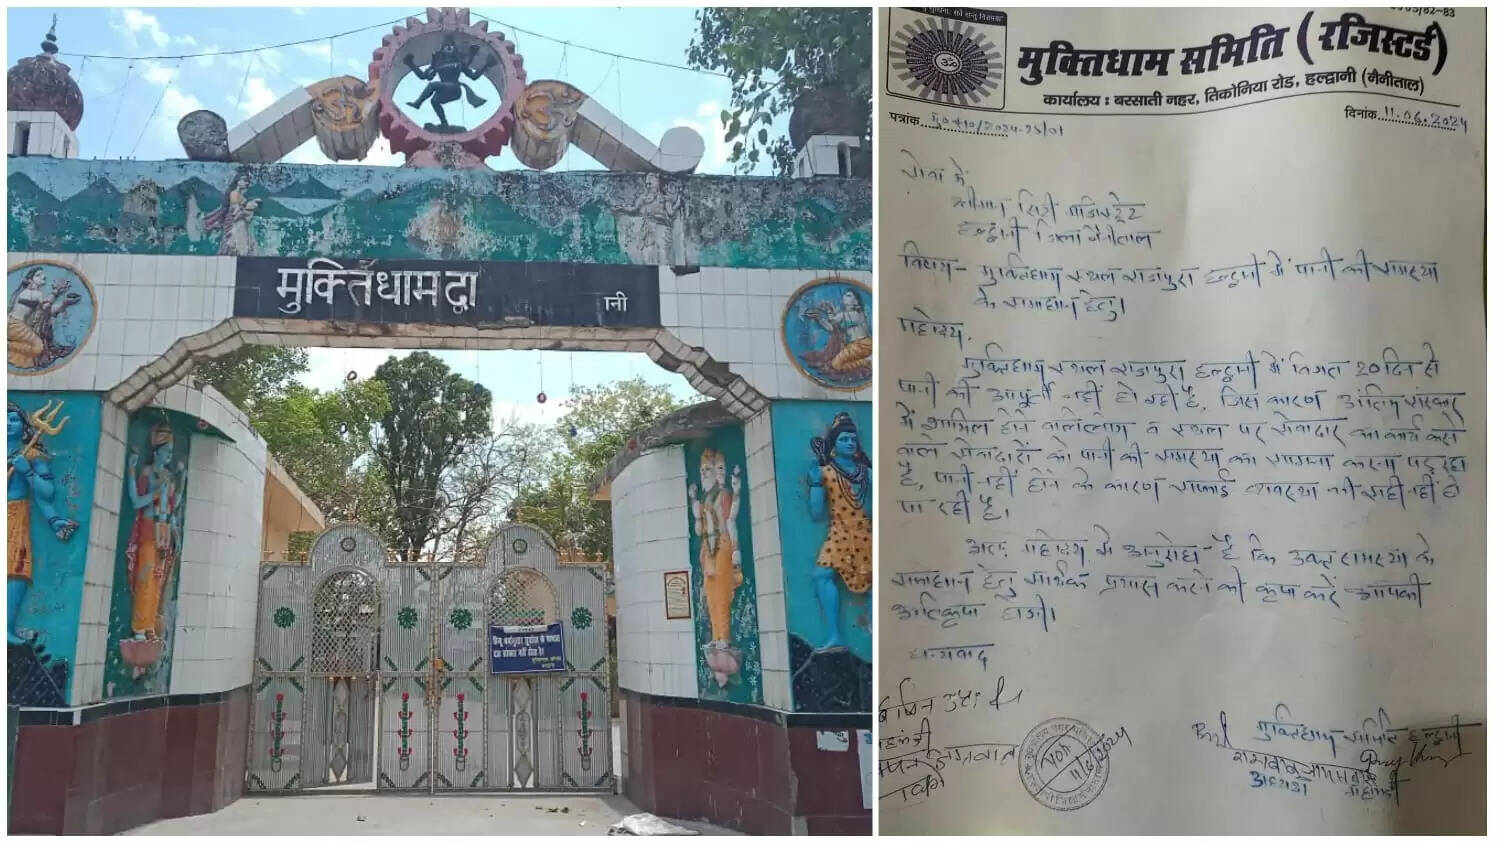 मुक्तिधाम द्वा
नी
मुक्तिधाम समिति (रजिस्टर्ड)
कार्यालय : बरसाती नहर, तिकोनिया रोड, हल्द्वानी (नैनीताल)
पत्रांक
दिनांक 11.06.2024
सेवा में
श्रीमान सिटी मजिस्ट्रेट
हल्द्वानी जिला नैनीताल
विषय- मुक्तिधाम स्थल राजपुरा हल्द्वानी में पानी की समस्या
के समाधान हेतु।
महोदय,
मुक्तिधाम स्थल राजपुरा हल्द्वानी में विगत 20 दिन से
पानी की आपूर्ती नहीं हो रही है, जिस कारण अंतिम संस्कार
में शामिल होने वाले लोग व स्थल पर सेवादार का कार्य करने
वाले सेवादारों को पानी की समस्या का सामना करना पड़ रहा
है, पानी नहीं होने के कारण सफाई व्यवस्था भी सही नहीं हो
पा रही है।
अतः महोदय से अनुरोध है कि उक्त समस्या के
समाधान हेतु सार्थक प्रयास करने की कृपा करें आपकी
अति कृपा होगी।
धन्यवाद
मुक्तिधाम समिति हल्द्वानी
अध्यक्ष
महामंत्री
11/6/2024